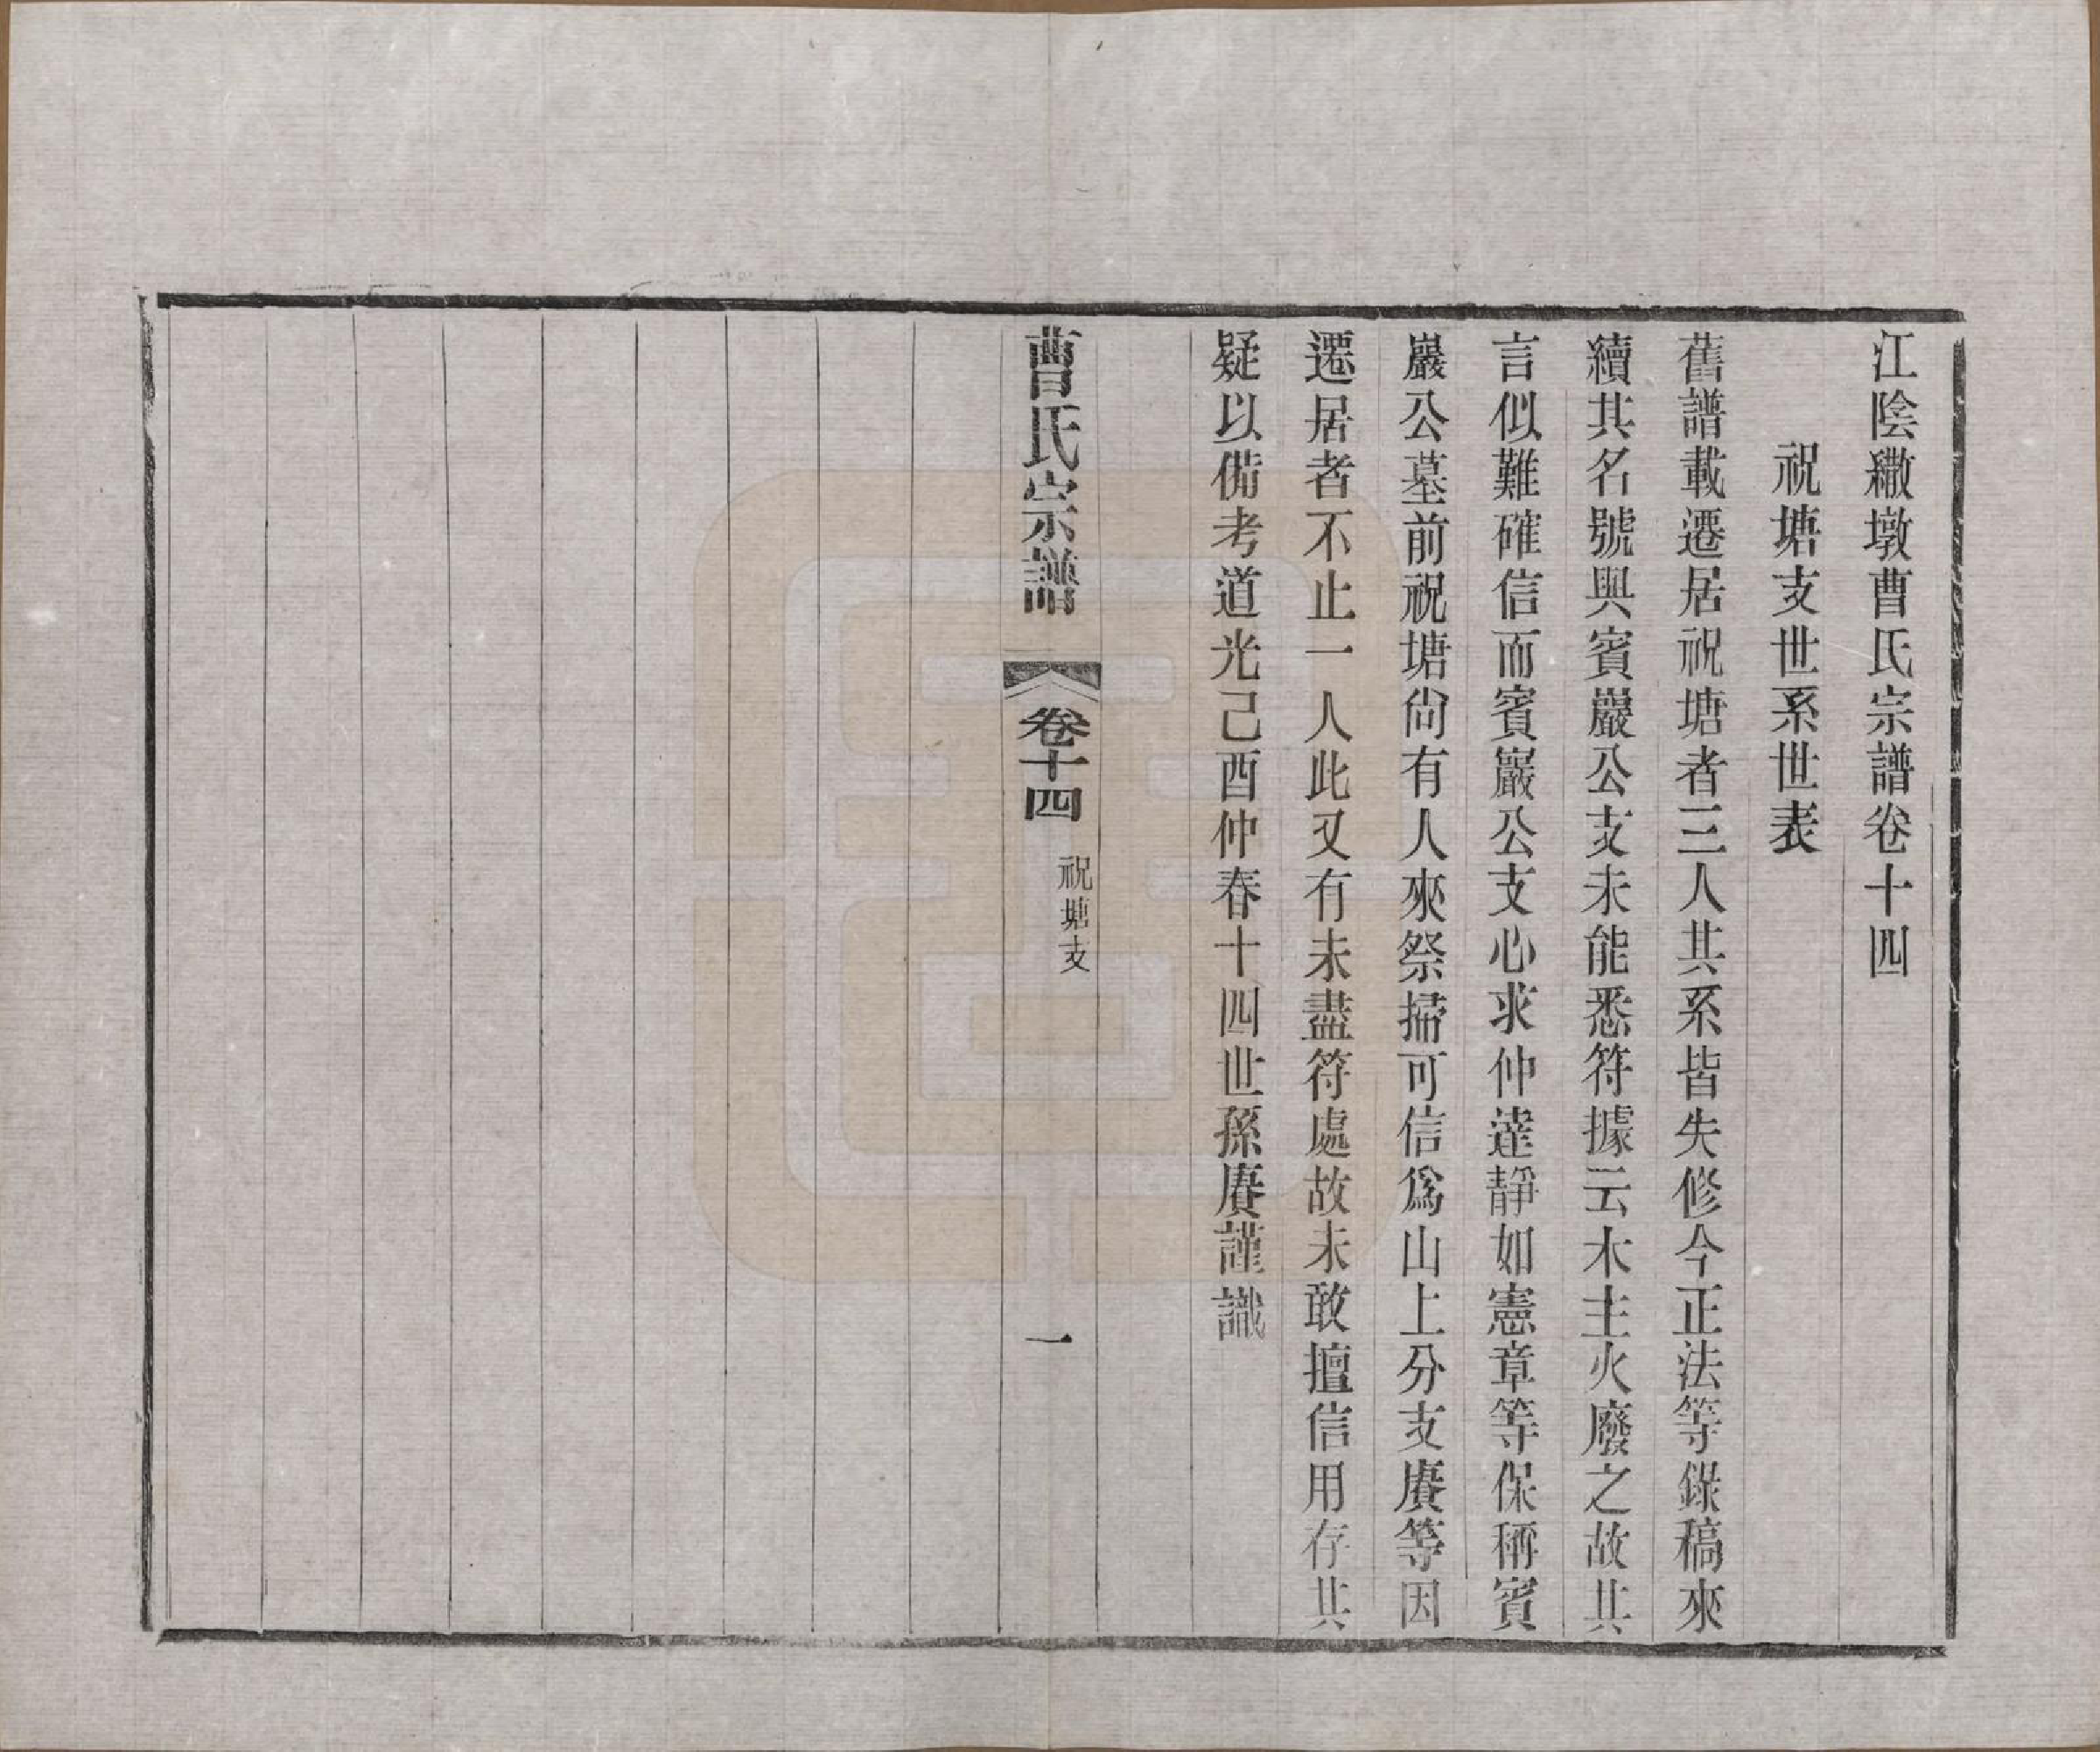 江陰繖墩曹氏宗譜卷十四
祝塘支世系世表
舊譜載遷居祝塘者三人其系皆失修今正法等錄稿來
續其名號與賓巖公支未能悉符據云木主火廢之故其
言似難確信而賓巖公支心求仲達靜如憲章等保稱賓
巖公墓前祝塘尙有人來祭掃可信爲山上分支賡等因
遷居者不止一人此又有未盡符處故未敢擅信用存其
疑以備考道光己酉仲春十四世孫賡謹識
曹氏宗譜
卷十四
祝塘支
一